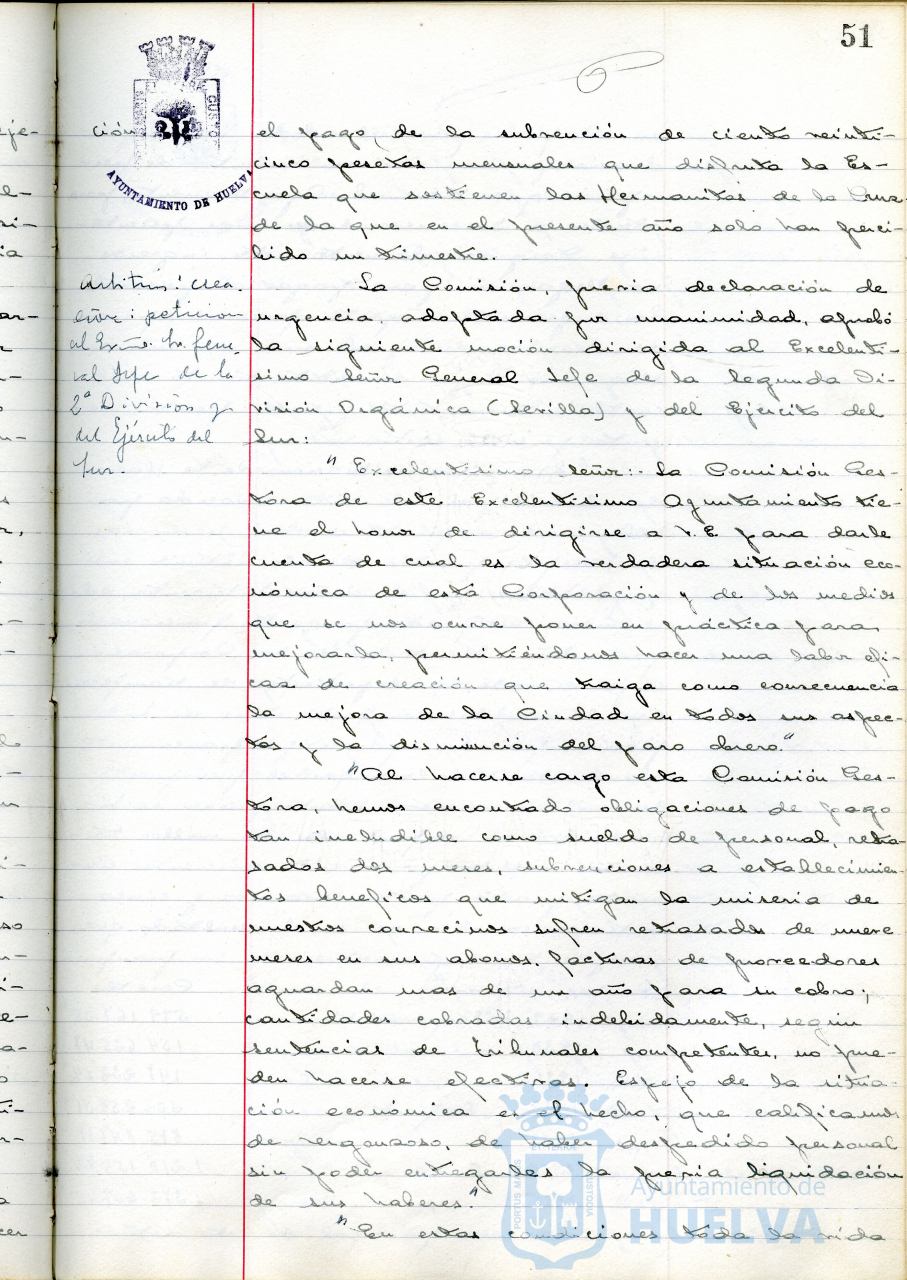 51
AYUNTAMIENTO DE HUELVA
ción
el pago de la subvención de ciento veinti-
cinco pesetas mensuales que disfruta la Es-
cuela que sostienen las Hermanitas de la Cruz
de la que en el presente año solo han perci-
bido un trimestre.
Arbitrios: crea-
ción: petición
al Exmo. Sr. Gene-
ral Jefe de la
2ª División y
del Ejército del
Sur.
La Comisión, previa declaración de
urgencia, adoptada por unanimidad, aprobó
la siguiente moción dirigida al Excelentí-
simo Señor General Jefe de la Segunda Di-
visión Orgánica (Sevilla) y del Ejercito del
Sur:
"Excelentísimo Señor:- La Comisión Ges-
tora de este Excelentísimo Ayuntamiento tie-
ne el honor de dirigirse a V.E. para darle
cuenta de cual es la verdadera situación eco-
nómica de esta Corporación y de los medios
que se nos ocurre poner en práctica para
mejorarla, permitiéndonos hacer una labor efi-
caz de creación que traiga como consecuencia
la mejora de la Ciudad en todos sus aspec-
tos y la disminución del paro obrero."
"Al hacerse cargo esta Comisión Ges-
tora, hemos encontrado obligaciones de pago
tan ineludible como sueldo de personal, retra-
sados dos meses, subvenciones a establecimien-
tos beneficos que mitigan la miseria de
nuestros convecinos sufren retrasados de nueve
meses en sus abonos, facturas de proveedores
aguardan mas de un año para su cobro;
cantidades cobradas indebidamente, según
sentencias de Tribunales competentes, no pue-
den hacerse efectivas. Espejo de la situa-
ción económica es el hecho, que calificamos
de vergonzoso, de haber despedido personal
sin poder entregarles la previa liquidación
de sus haberes."
"En estas condiciones toda la vida
Ayuntamiento de
HUELVA